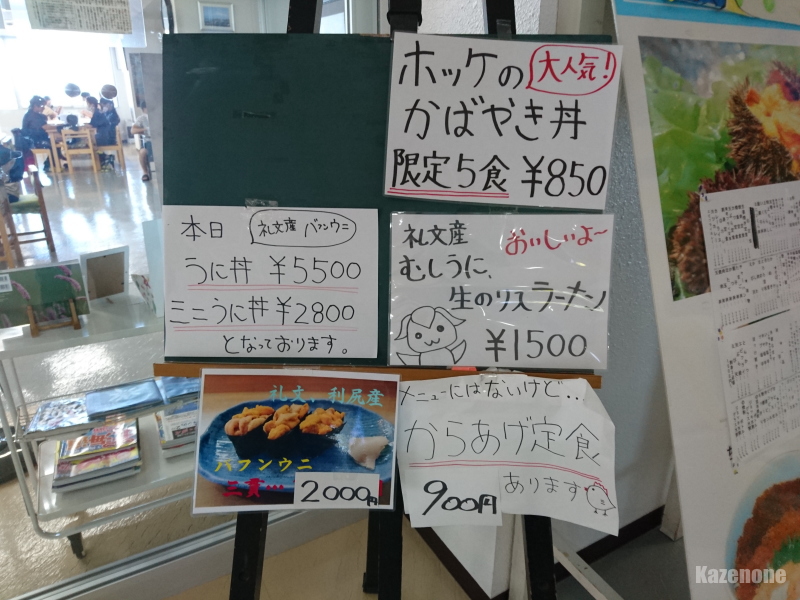 ホッケの 大人気!
かばやき丼
限定5食 ¥850
本日 礼文産 バフンウニ
うに丼 ¥5500
ミニうに丼 ¥2800
となっております。
礼文産 おいしいよ〜
むしうに、
生のりスラーメン
¥1500
礼文、利尻産
バフンウニ
三貫…
2000円
メニューにはないけど‥
からあげ定食
900円 あります
Kazenone